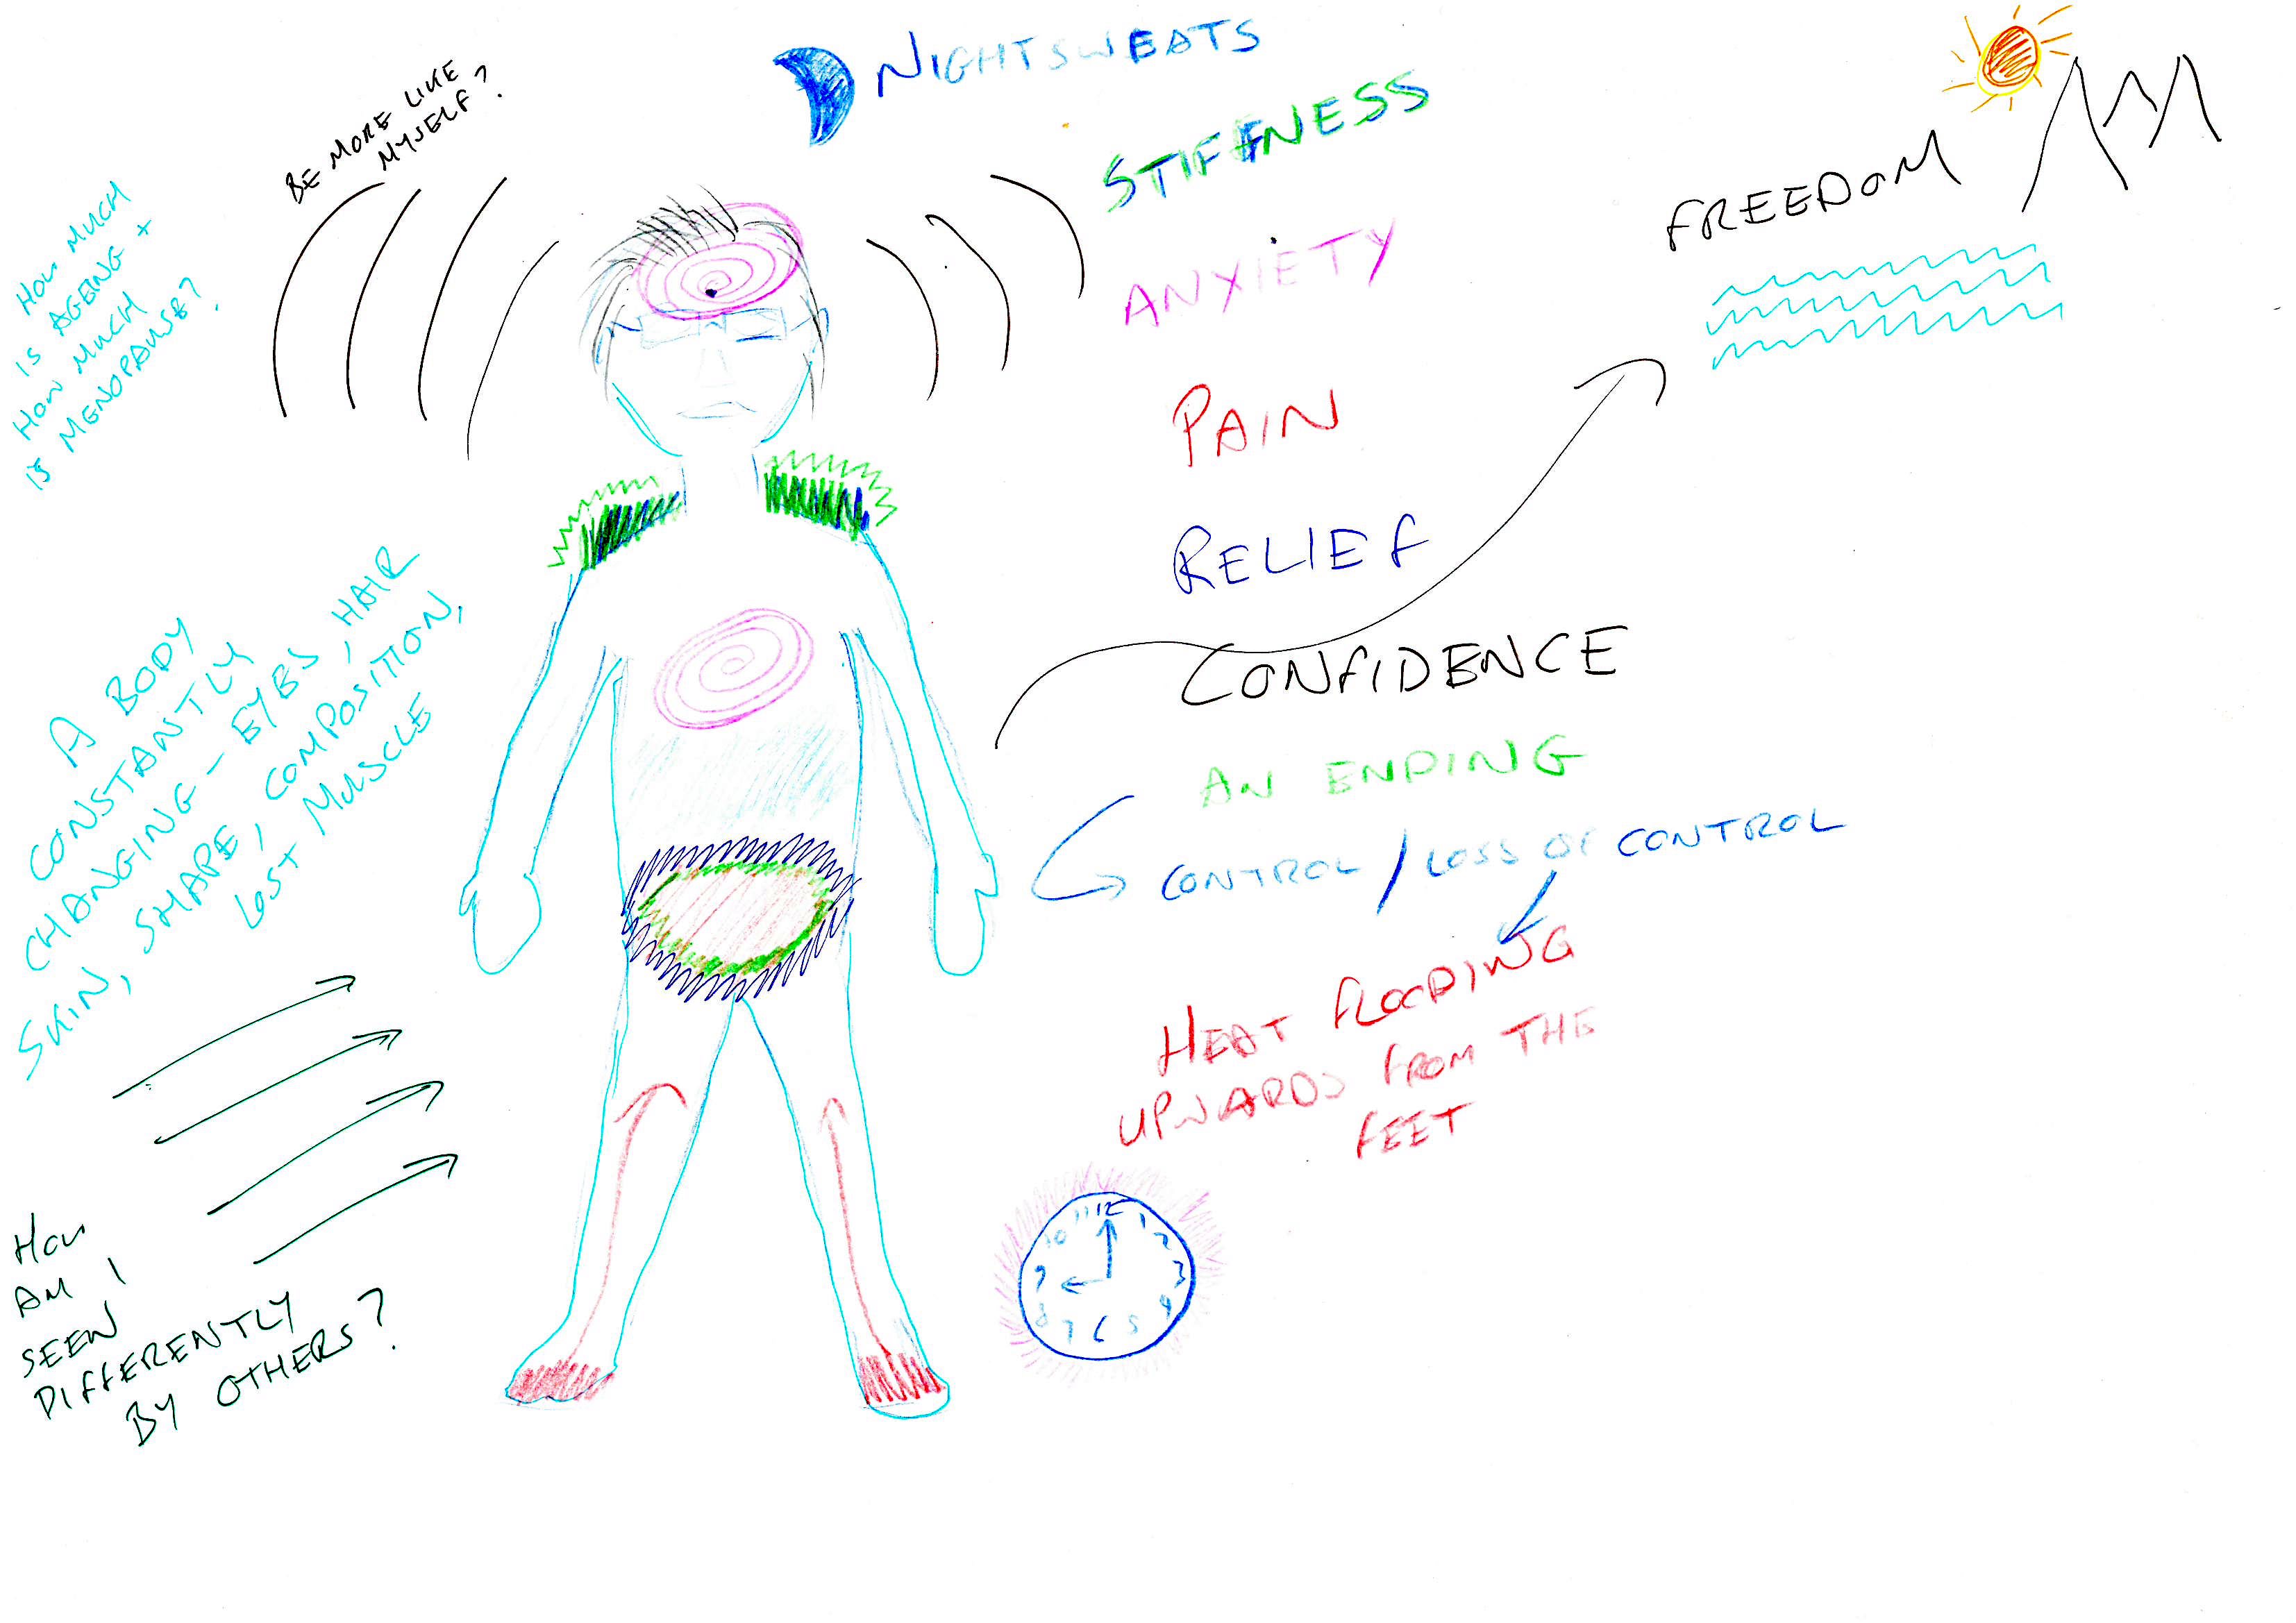 NIGHTSWEATS
STIFFNESS
ANXIETY
PAIN
RELIEF
CONFIDENCE
AN ENDING
CONTROL / LOSS OF CONTROL
HEAT FLOODING
UPWARDS FROM THE
FEET
FREEDOM
BE MORE LIKE
MYSELF?
HOW MUCH
IS AGEING +
HOW MUCH
IS MENOPAUSE?
A BODY
CONSTANTLY
CHANGING – EYES, HAIR
SKIN, SHAPE, COMPOSITION,
LOST MUSCLE
HOW
AM I
SEEN
DIFFERENTLY
BY OTHERS?
12
1
2
3
4
5
6
7
8
9
10
11